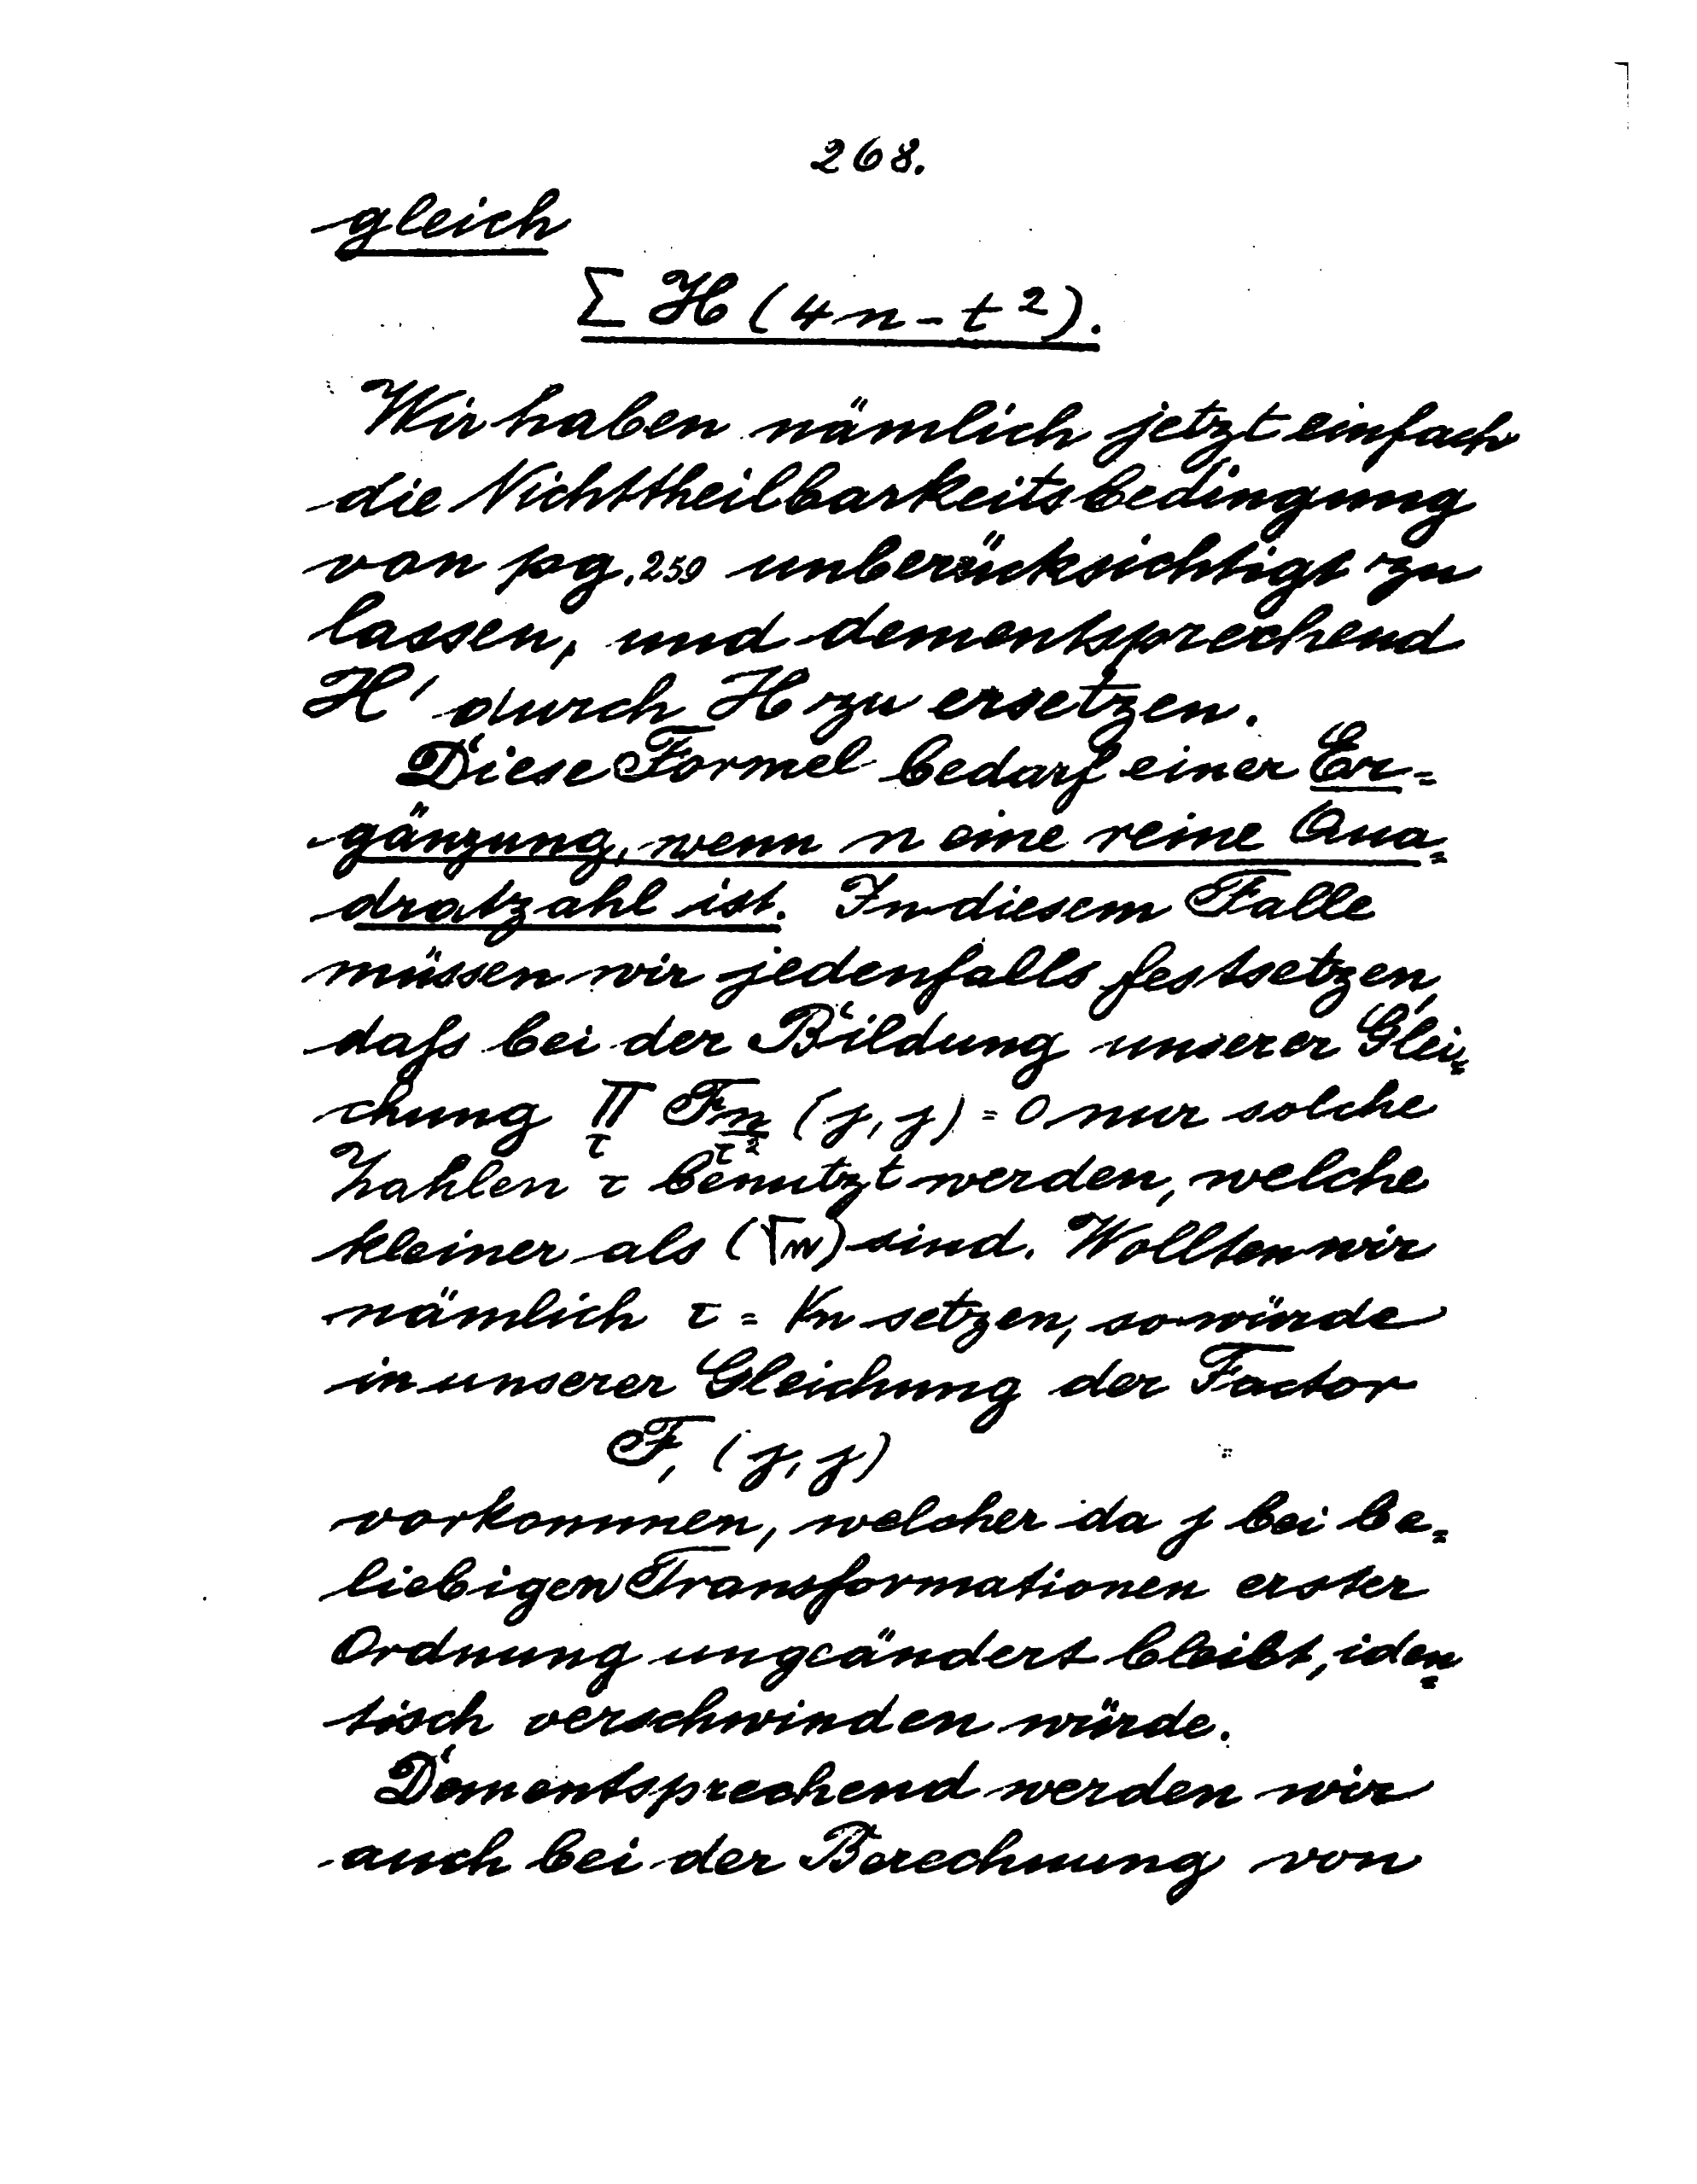 268.
gleich
Σ H (4n - t²).
Wir haben nämlich jetzt einfach
die Nichttheilbarkeitsbedingung
von pg. 259 unberücksichtigt zu
lassen, und dementsprechend
H' durch H zu ersetzen.
Diese Formel bedarf einer Er=
gänzung, wenn n eine reine Qua=
dratzahl ist. In diesem Falle
müssen wir jedenfalls festsetzen,
daſs bei der Bildung unserer Glei=
chung Π_τ F_{n/τ²} (j, j) = 0 nur solche
Zahlen τ benutzt werden, welche
kleiner als (√n) sind. Wollten wir
nämlich τ = √n setzen, so würde
in unserer Gleichung der Factor
F₁ (j, j)
vorkommen, welcher da j bei be=
liebigen Transformationen erster
Ordnung ungeändert bleibt, iden=
tisch verschwinden würde.
Dementsprechend werden wir
auch bei der Berechnung von